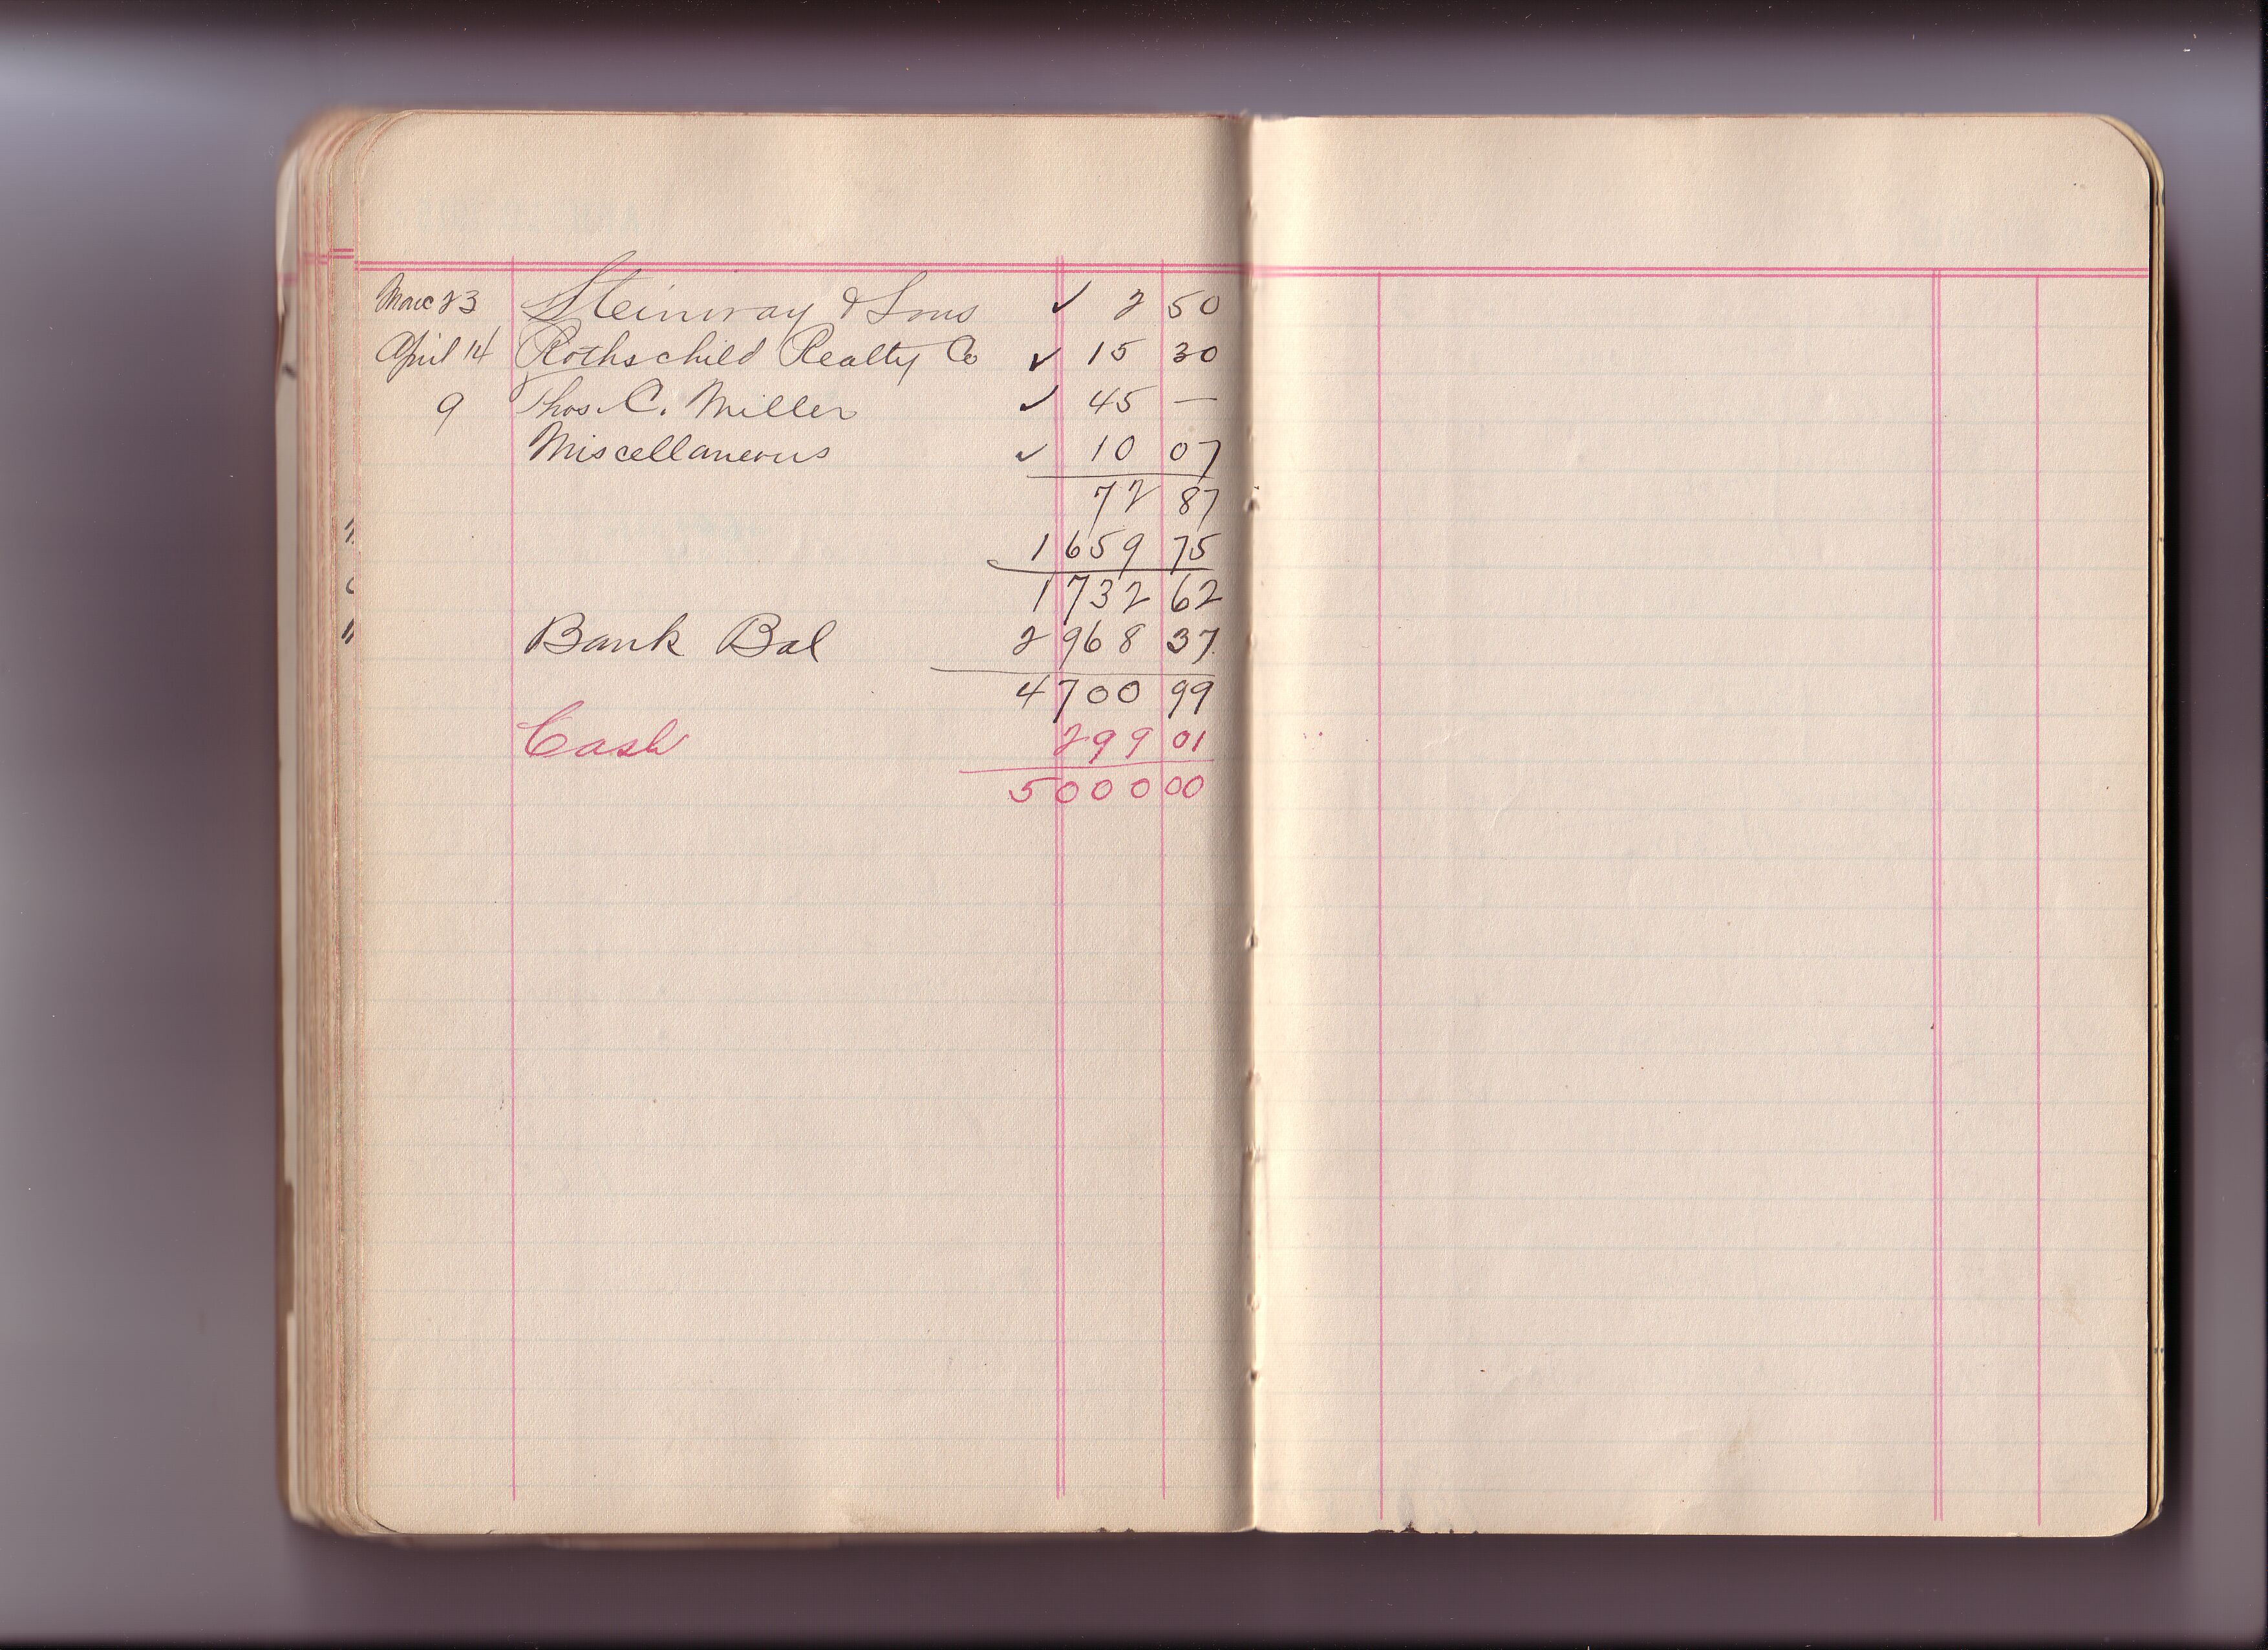 Marc 23 Steinway & Sons ✓ 2 50
April 14 Rothschild Realty Co ✓ 15 30
9 Thos. C. Miller ✓ 45 —
Miscellaneous ✓ 10 07
72 87
1 659 75
1 732 62
Bank Bal 2 968 37
4 700 99
Cash 299 01
5 000 00